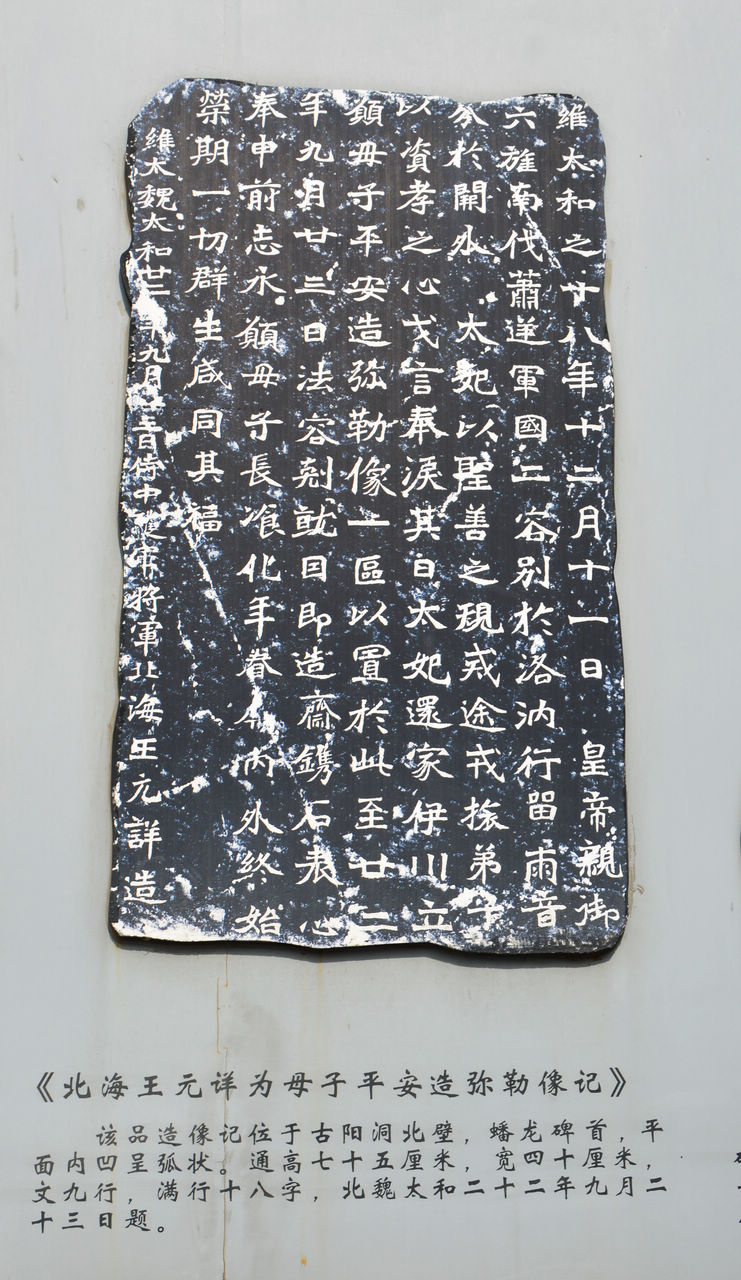 維太和之十八年十二月十一日 皇帝親御
六旌南伐蕭逆軍國二容別於洛汭行留兩音
分於開外 太妃以聖善之規戒途戎旅弟子
以資孝之心戈言奉淚其日太妃還家伊川立
願母子平安造弥勒像一區以置於此至廿二
年九月廿三日法容剋就因即造齋鐫石表心
奉申前志永願母子長飡化年眷屬內外終始
榮期一切群生咸同其福
維大魏太和廿二年九月廿三日侍中護軍將軍北海王元詳造
《北海王元详为母子平安造弥勒像记》
该品造像记位于古阳洞北壁，蟠龙碑首，平
面内凹呈弧状。通高七十五厘米，宽四十厘米，
文九行，满行十八字，北魏太和二十二年九月二
十三日题。